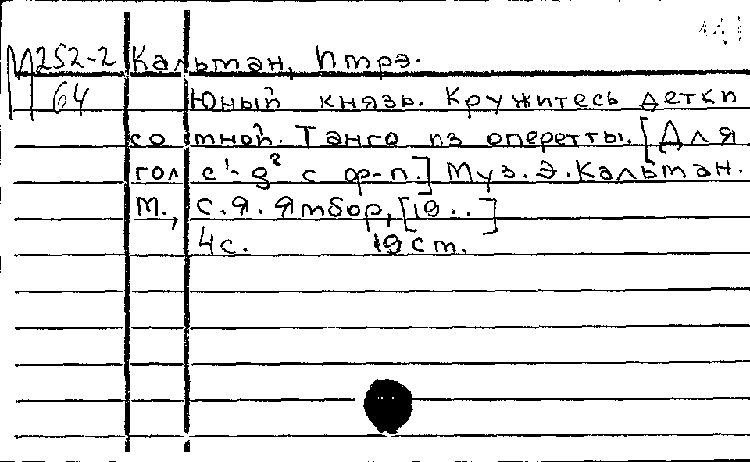 М 252-2 Кальман, Имрэ.
64 Юный князь. Кружитесь детки
со мной. Танго из оперетты. [Для
гол с¹-g² с ф-п.] Муз. Э. Кальман.
М., С.Я. Ямбор, [19..]
4с. 19 ст.